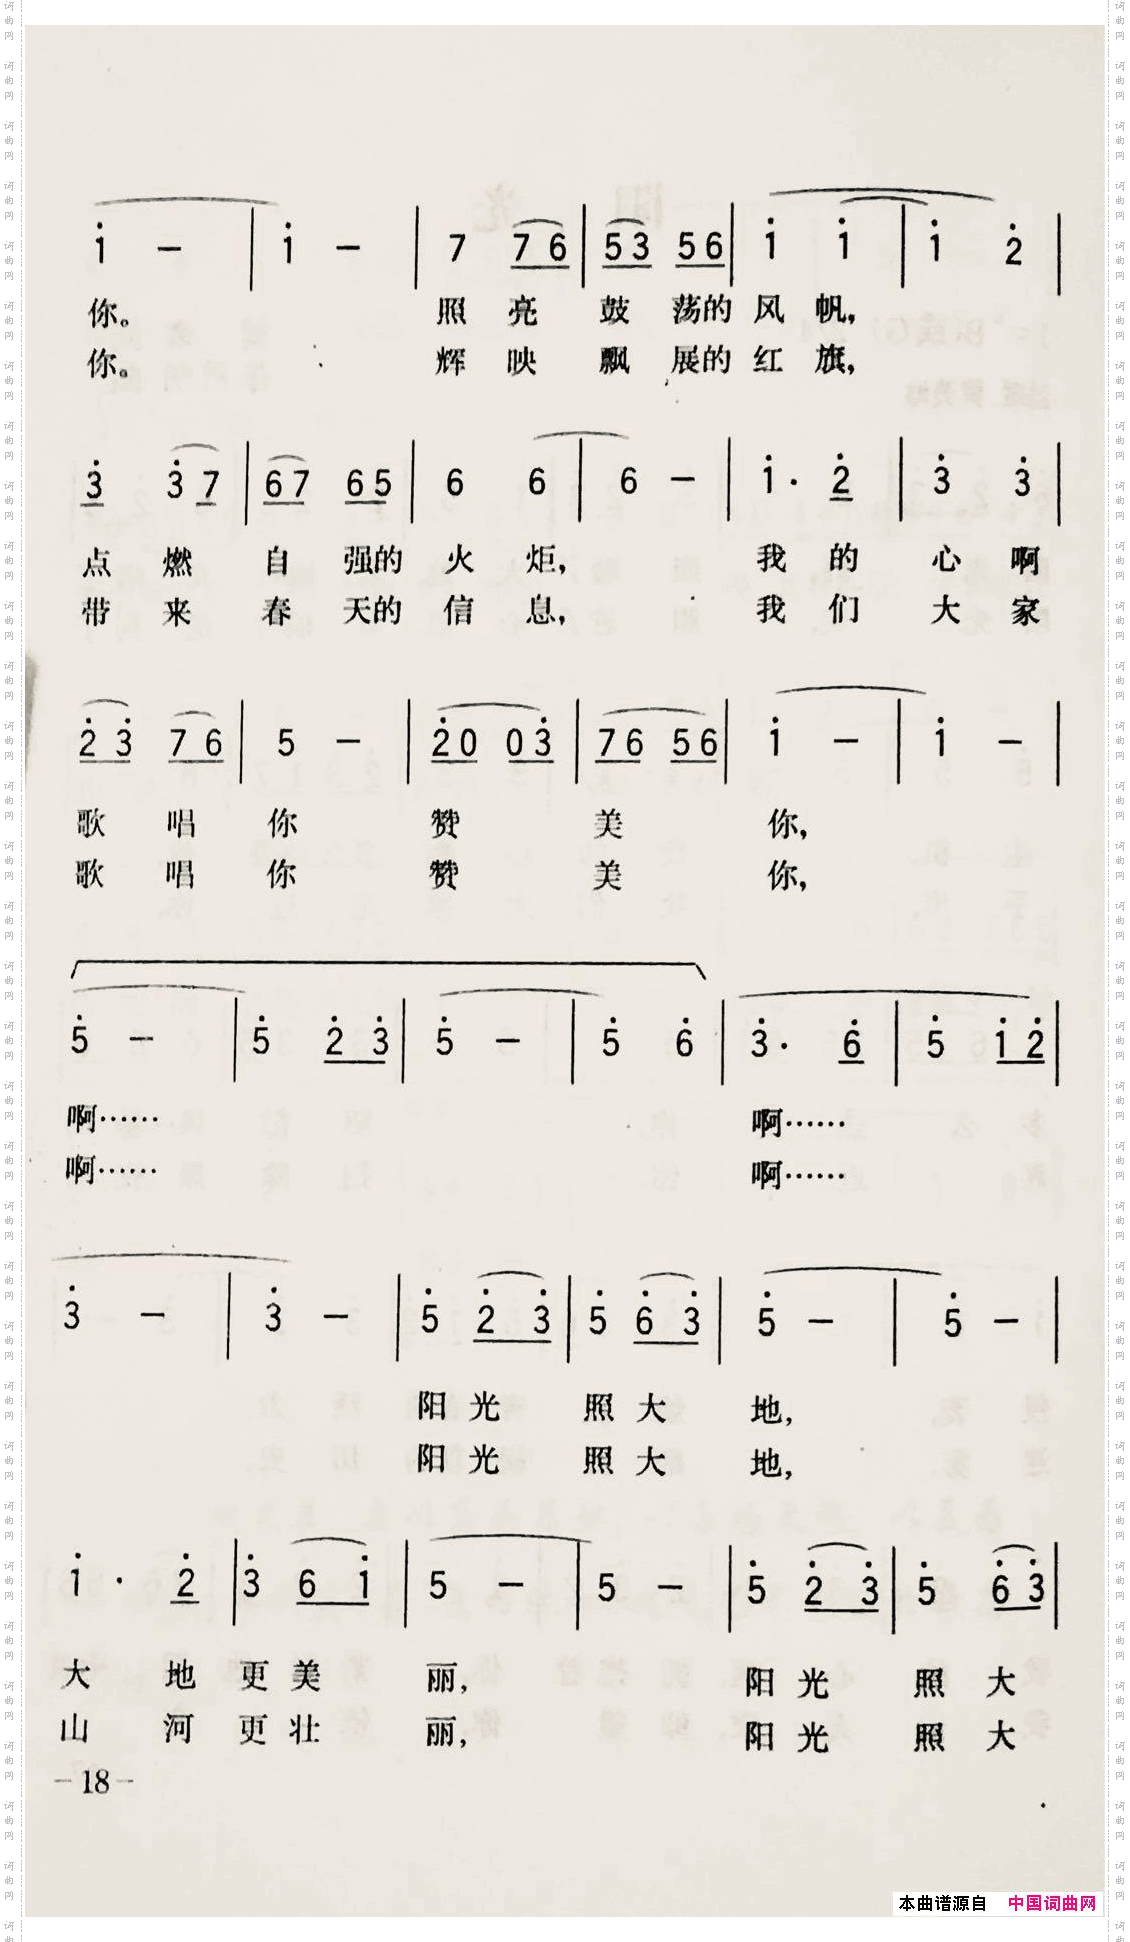 i － | i － | 7 7 6 | 5 3 5 6 | i i | i 2 |
你。 照 亮 鼓 荡的 风 帆，
你。 辉 映 飘 展的 红 旗，
3 3 7 | 6 7 6 5 | 6 6 | 6 － | i · 2 | 3 3 |
点 燃 自 强的 火 炬， 我 的 心 啊
带 来 春 天的 信 息， 我 们 大 家
2 3 7 6 | 5 － | 2 0 0 3 | 7 6 5 6 | i － | i － |
歌 唱 你 赞 美 你，
歌 唱 你 赞 美 你，
5 － | 5 2 3 | 5 － | 5 6 | 3 · 6 | 5 i 2 |
啊…… 啊……
啊…… 啊……
3 － | 3 － | 5 2 3 | 5 6 3 | 5 － | 5 － |
阳 光 照 大 地，
阳 光 照 大 地，
i · 2 | 3 6 i | 5 － | 5 － | 5 2 3 | 5 6 3 |
大 地 更 美 丽， 阳 光 照 大
山 河 更 壮 丽， 阳 光 照 大
－18－
本曲谱源自 中国词曲网